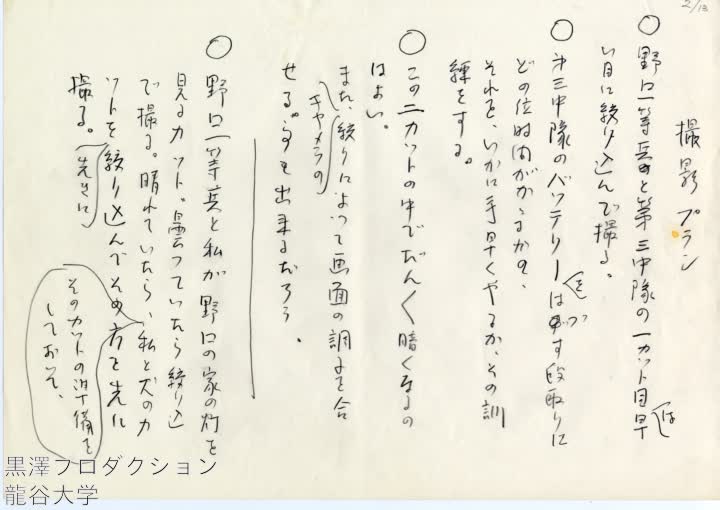 2/13
撮影プラン
○野口一等兵と第三中隊の一カット目は早
い目に絞り込んで撮る。
○第三中隊のバッテリーをはづす段取りに
どの位時間がかゝるかの、
それを、いかに手早くやるか、その訓
練をする。
○この二カットの中でだんだん暗くなるの
はよい。
また、キャメラの絞りによって画面の調子を合
せる事も出来るだろう。
○野口一等兵と私が野口の家の灯を
見るカット。曇っていたら絞り込
で撮る。晴れていたら、私と犬のカ
ットを絞り込んでその方を先に
撮る。先きに
そのカットの準備を
しておいて、
黒澤プロダクション
龍谷大学